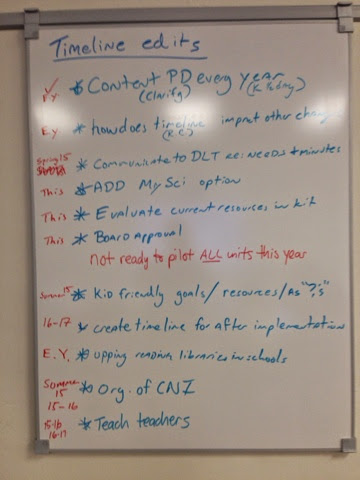 Timeline edits
* Content PD every year
E.Y. (Clarify) (K ½ day)
E.Y. * how does timeline impact other
(R.C.)
Spring 15 * Communicate to DLT re: needs + minutes
This * ADD MySci option
This * Evaluate current resources in kit
This * Board Approval
not ready to pilot ALL units this year
Summer 15 * Kid friendly goals/resources/As "?'s"
16-17 * create timeline for after implementation
E.Y. * upping reading libraries in schools
Summer * Org. of CNI
15
15-16
15-16 * Teach teachers
16-17